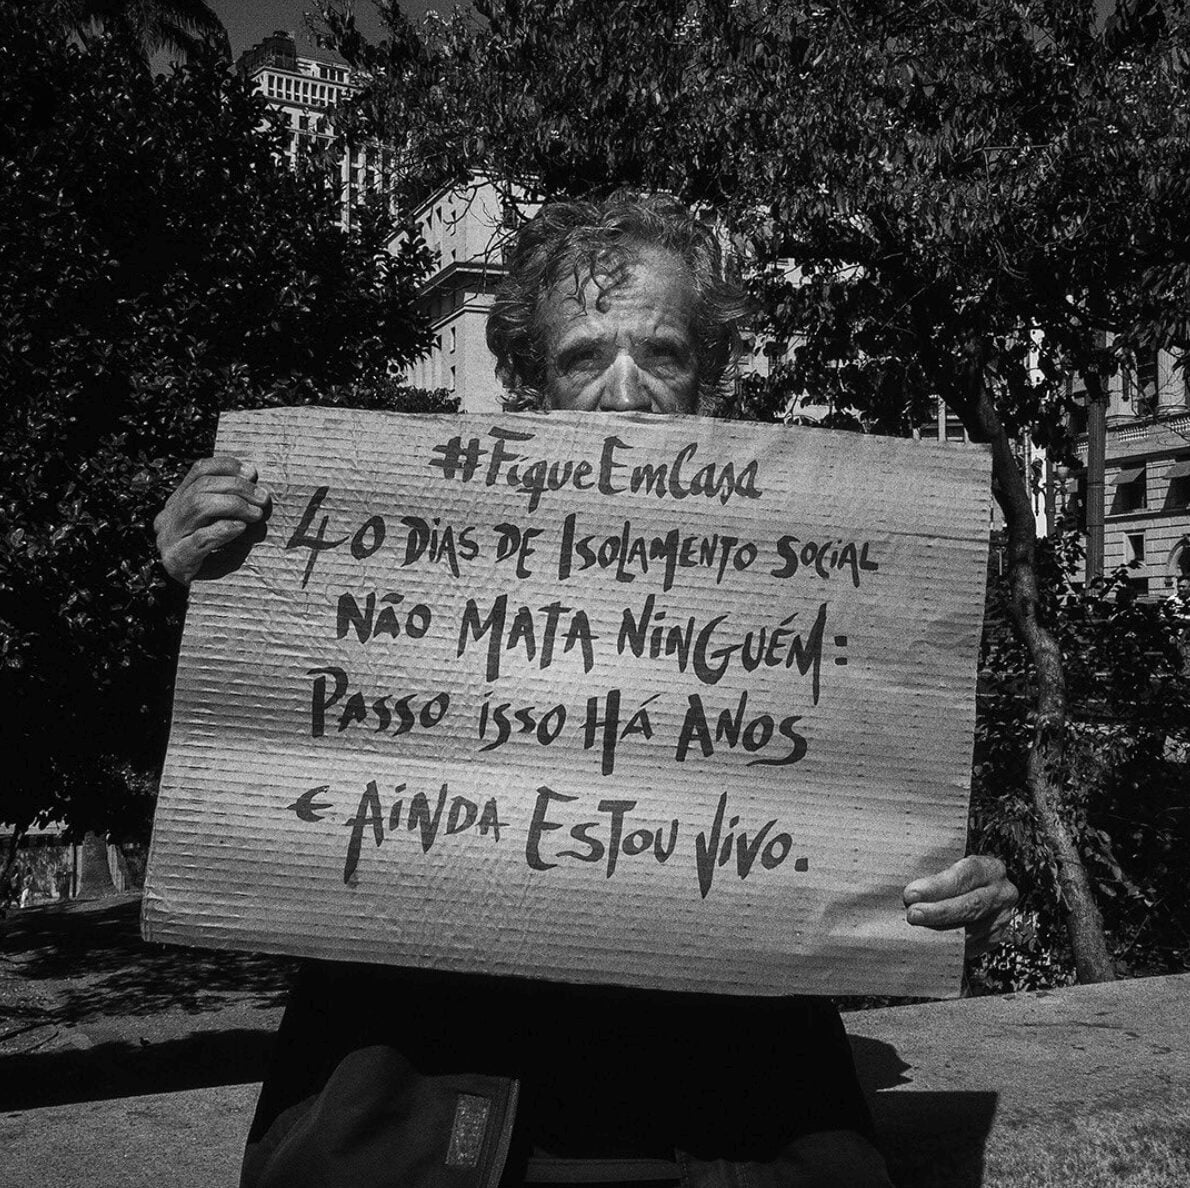 #FiqueEmCasa
40 DiAS DE ISOLAMENTO SOCiAL
NÃO MATA NiNGUÉM:
PASSO iSSO HÁ ANOS
E AiNDA ESTOU ViVO.